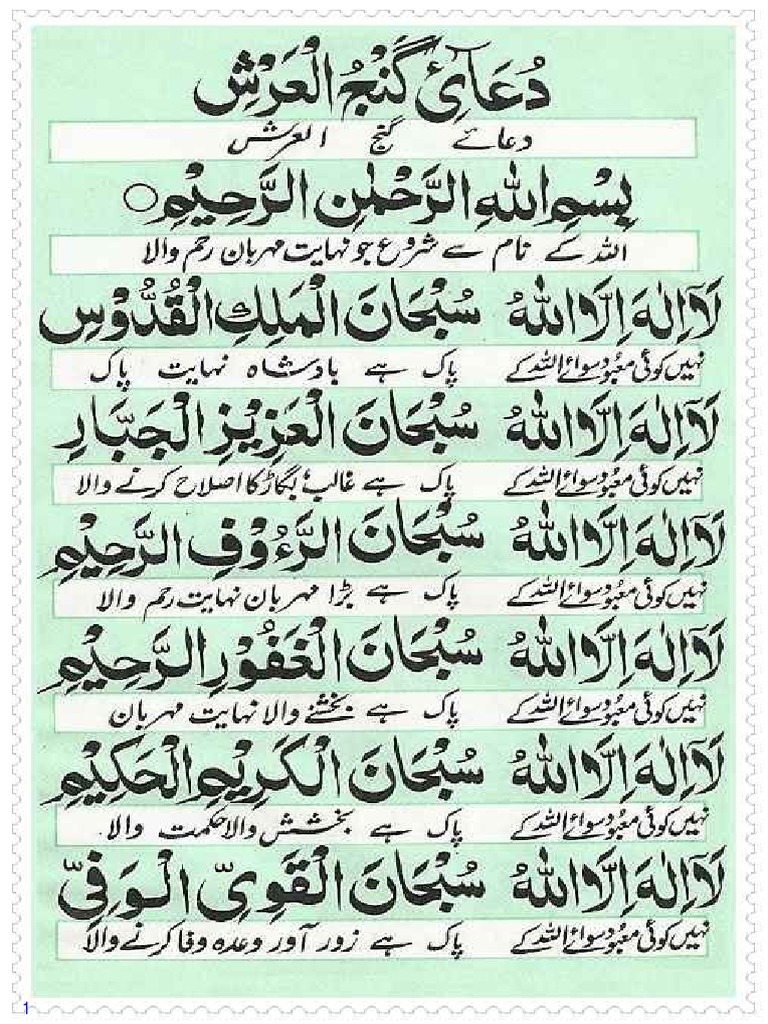 دُعَآئِ گَنْجُ الْعَرْشِ
دعائے گنج العرش
بِسْمِ اللهِ الرَّحْمٰنِ الرَّحِيْمِ ○
اللہ کے نام سے شروع جو نہایت مہربان رحم والا
لَآ اِلٰهَ اِلَّا اللهُ سُبْحَانَ الْمَلِكِ الْقُدُّوْسِ
نہیں کوئی معبود سوائے اللہ کے پاک ہے بادشاہ نہایت پاک
لَآ اِلٰهَ اِلَّا اللهُ سُبْحَانَ الْعَزِيْزِ الْجَبَّارِ
نہیں کوئی معبود سوائے اللہ کے پاک ہے غالب بگاڑ کا اصلاح کرنے والا
لَآ اِلٰهَ اِلَّا اللهُ سُبْحَانَ الرَّءُوْفِ الرَّحِيْمِ
نہیں کوئی معبود سوائے اللہ کے پاک ہے بڑا مہربان نہایت رحم والا
لَآ اِلٰهَ اِلَّا اللهُ سُبْحَانَ الْغَفُوْرِ الرَّحِيْمِ
نہیں کوئی معبود سوائے اللہ کے پاک ہے بخشنے والا نہایت مہربان
لَآ اِلٰهَ اِلَّا اللهُ سُبْحَانَ الْكَرِيْمِ الْحَكِيْمِ
نہیں کوئی معبود سوائے اللہ کے پاک ہے بخشش والا حکمت والا
لَآ اِلٰهَ اِلَّا اللهُ سُبْحَانَ الْقَوِيِّ الْوَفِيِّ
نہیں کوئی معبود سوائے اللہ کے پاک ہے زور آور وعدہ وفا کرنے والا
1